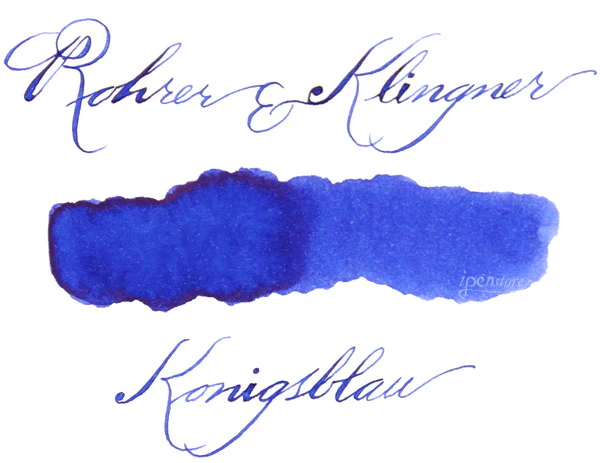 Rohrer & Klingner
ipenstore
Konigsblau